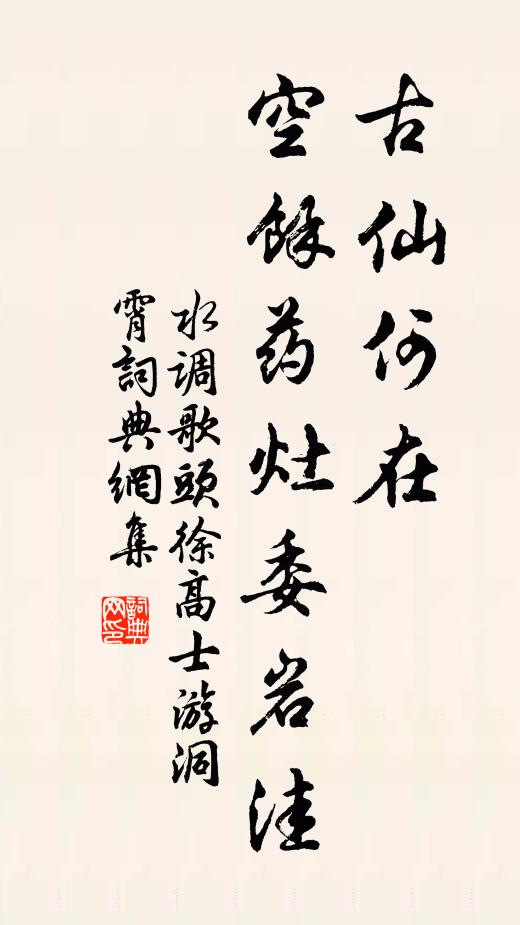 古仙何在
空餘药灶委岩洼
水调歌頭徐高士游洞
霄詞典網集
詞典网印